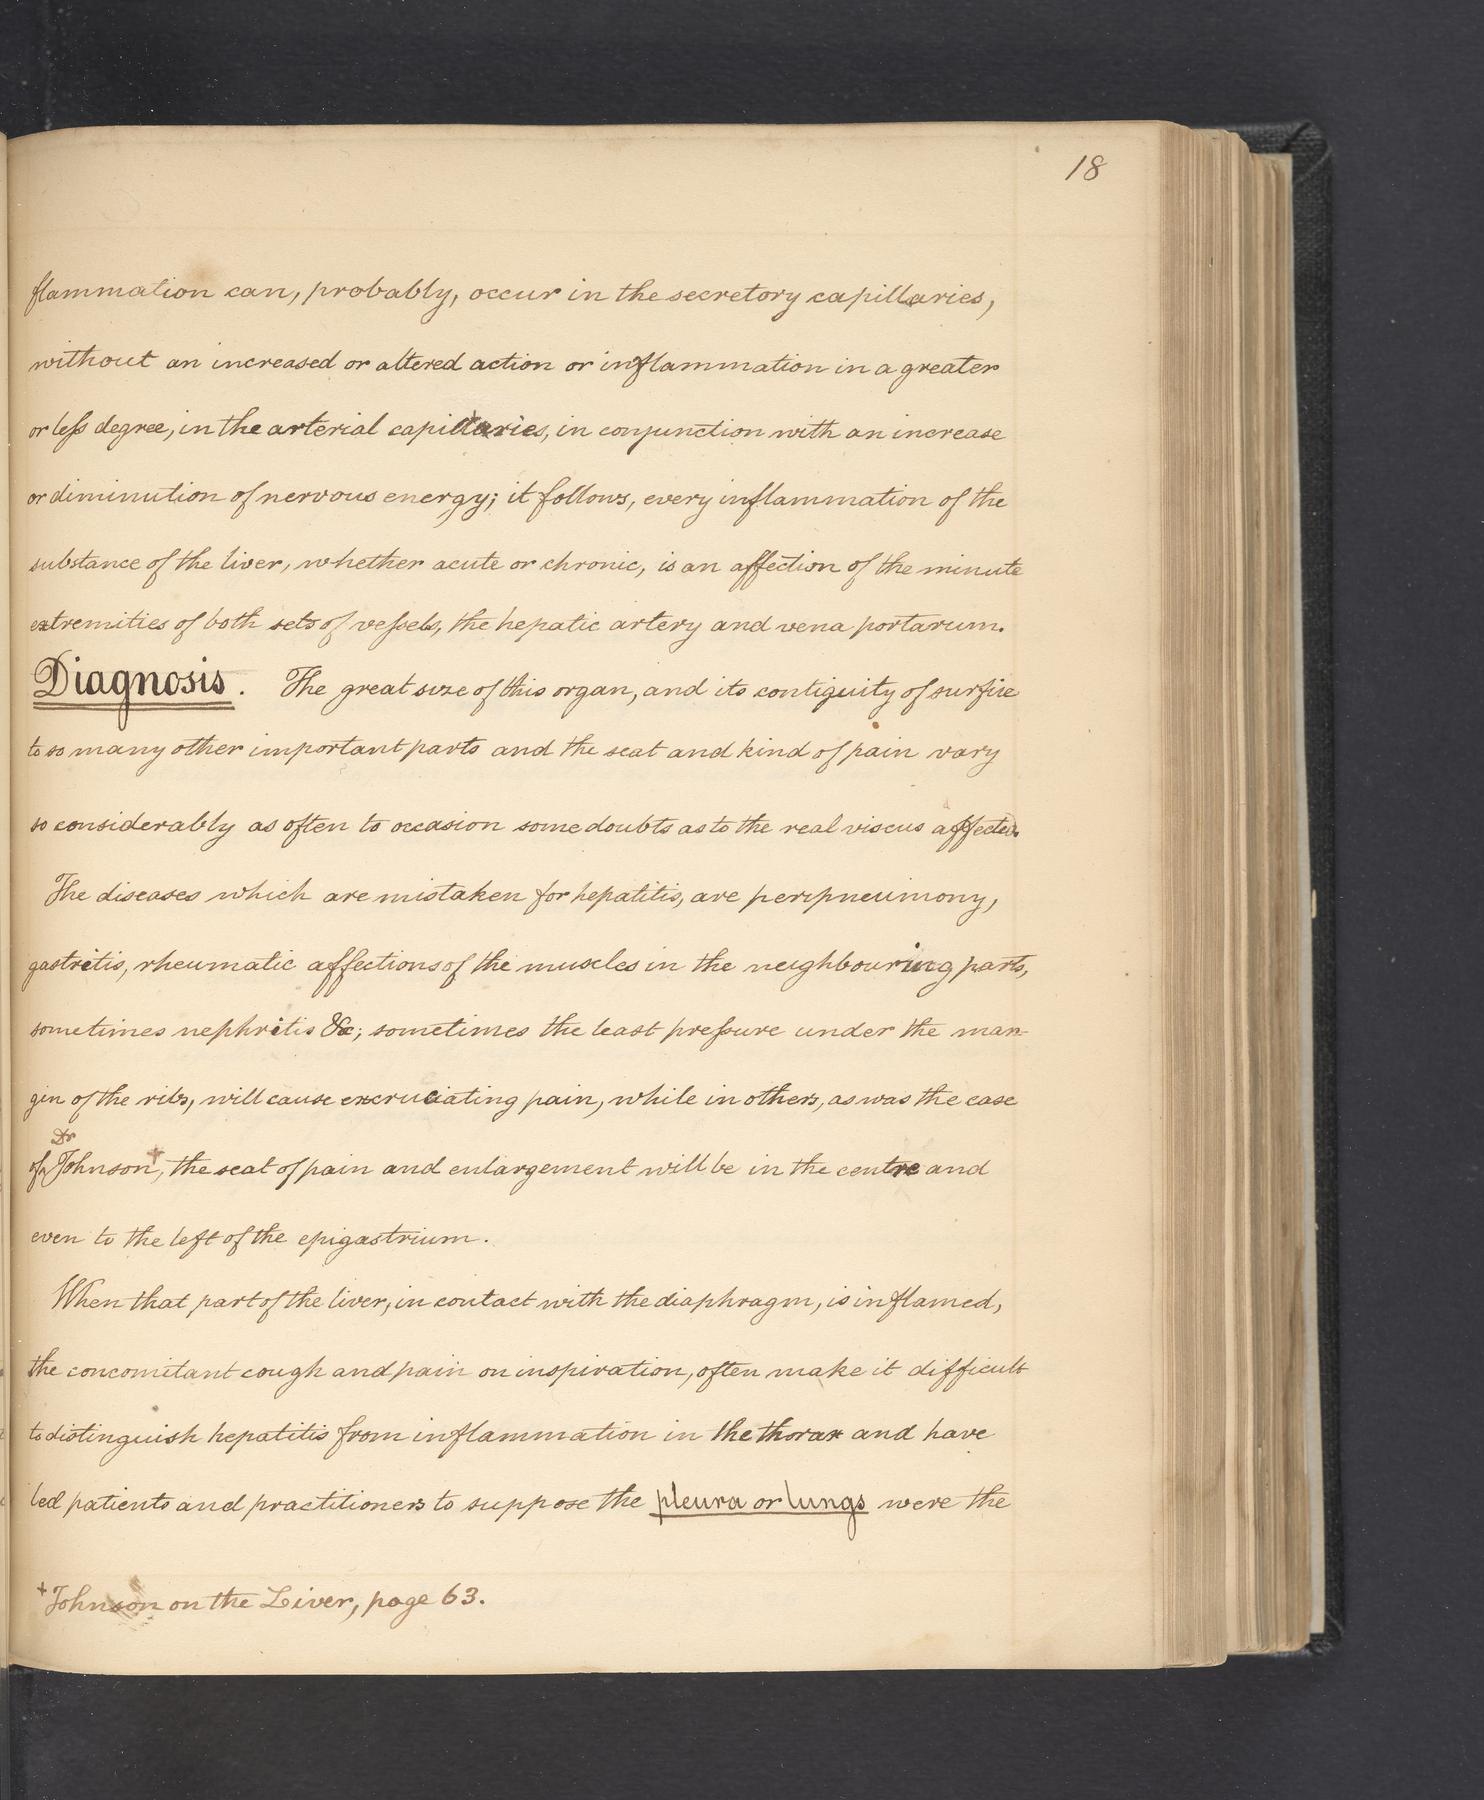 18
flammation can, probably, occur in the secretory capillaries,
without an increased or altered action or inflammation in a greater
or less degree, in the arterial capillaries, in conjunction with an increase
or diminution of nervous energy; it follows, every inflammation of the
substance of the liver, whether acute or chronic, is an affection of the minute
extremities of both sets of vessels, the hepatic artery and vena portarum.
Diagnosis. The great size of this organ, and its contiguity of surfice
to so many other important parts and the seat and kind of pain vary
so considerably as often to occasion some doubts as to the real viscus affected.
The diseases which are mistaken for hepatitis, are peripneumony,
gastritis, rheumatic affections of the muscles in the neighbouring parts,
sometimes nephritis &c; sometimes the least pressure under the mar-
gin of the ribs, will cause excruciating pain, while in others, as was the case
of Dr Johnson+, the seat of pain and enlargement will be in the centre and
even to the left of the epigastrium.
When that part of the liver, in contact with the diaphragm, is inflamed,
the concomitant cough and pain on inspiration, often make it difficult
to distinguish hepatitis from inflammation in the thorax and have
led patients and practitioners to suppose the pleura or lungs were the
+Johnson on the Liver, page 63.